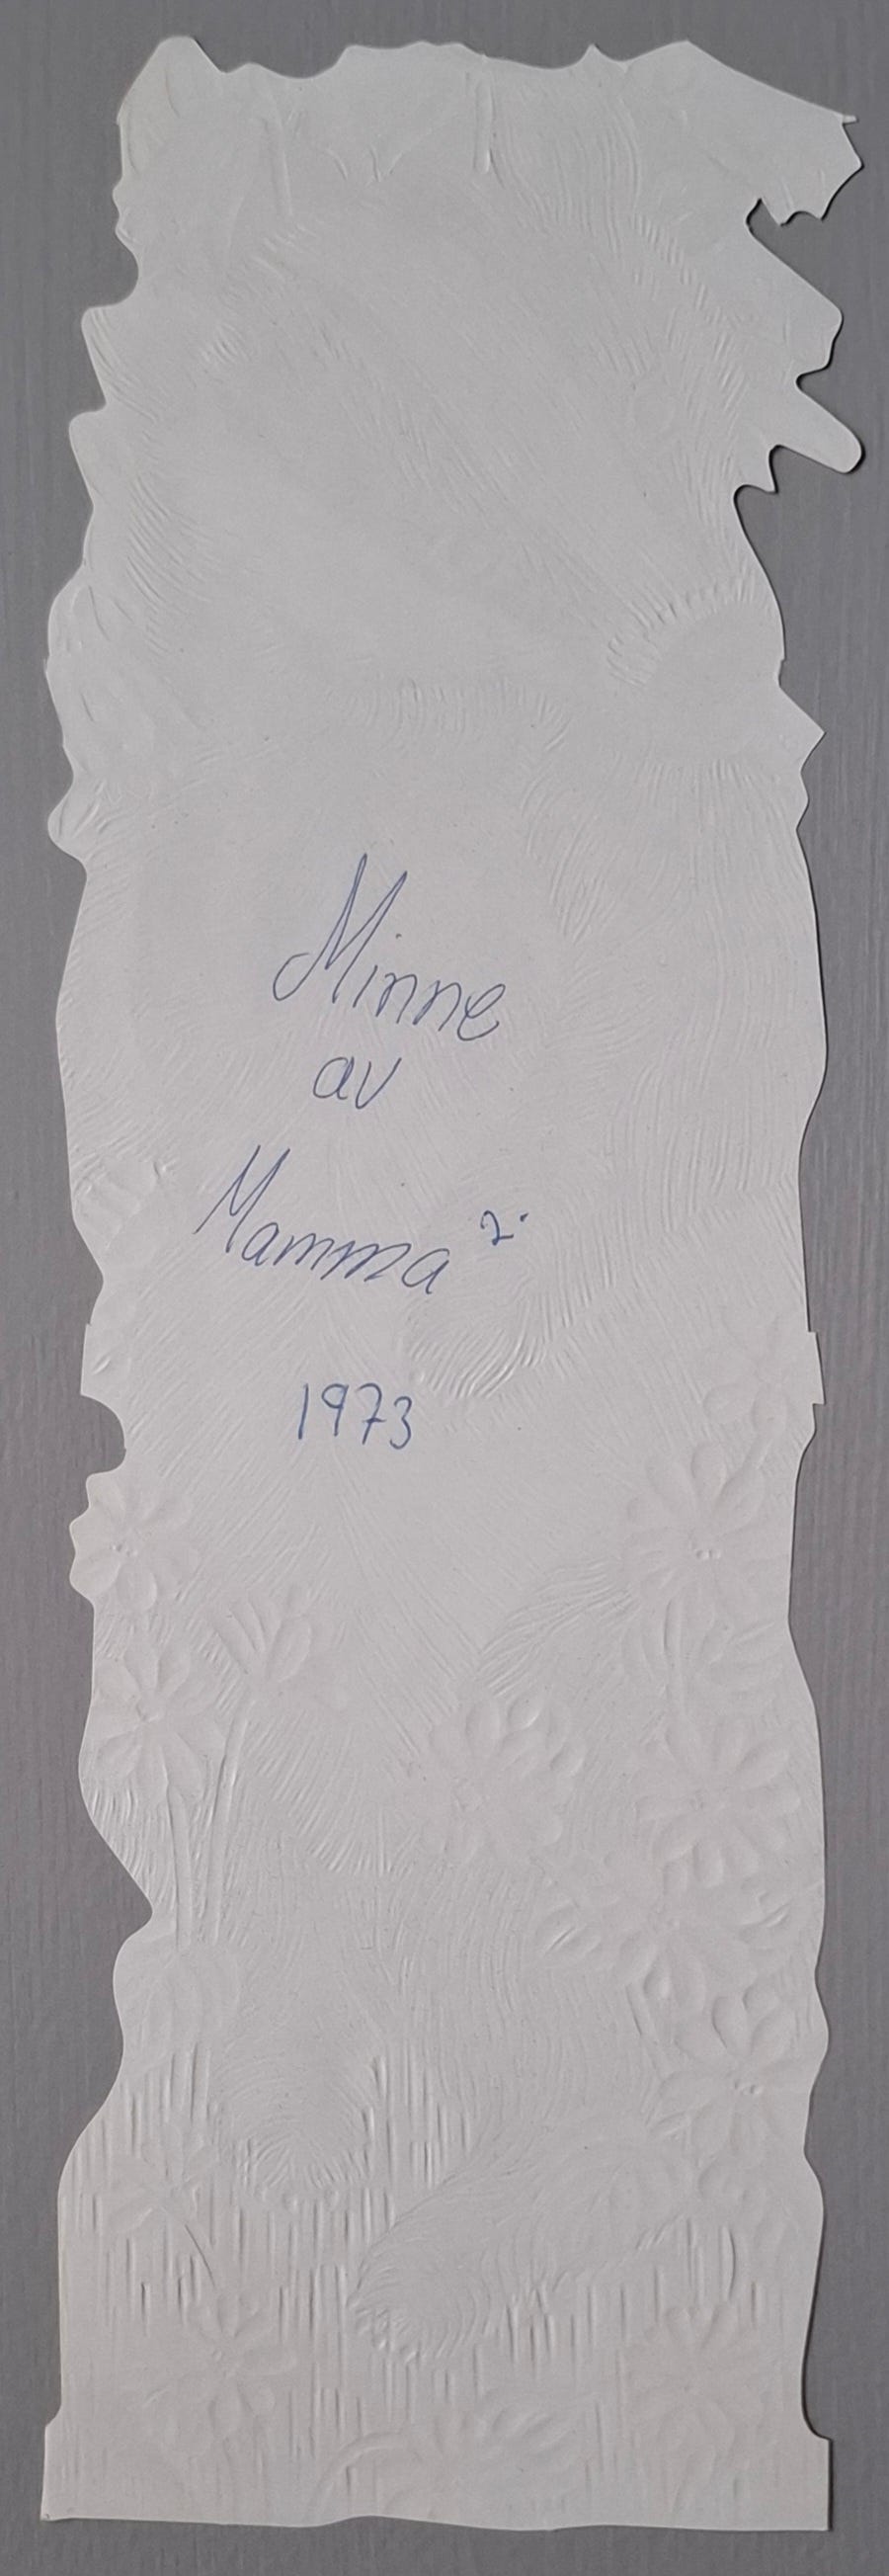 Minne
av
Mamma 2.
1973